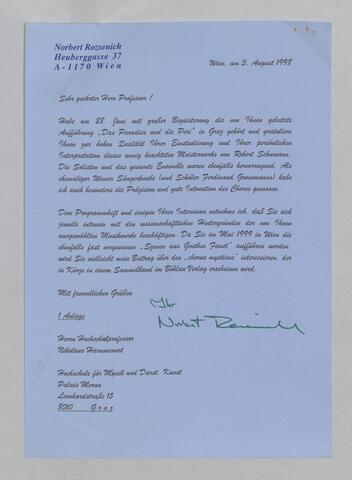 Norbert Rozsenich
Heuberggasse 37
A-1170 Wien
Wien, am 3. August 1998
Sehr geehrter Herr Professor !
Habe am 28. Juni mit großer Begeisterung die von Ihnen geleitete
Aufführung „Das Paradies und die Peri" in Graz gehört und gratuliere
Ihnen zur hohen Qualität Ihrer Einstudierung und Ihrer persönlichen
Interpretation dieses wenig beachteten Meisterwerks von Robert Schumann.
Die Solisten und das gesamte Ensemble waren ebenfalls hervorragend. Als
ehemaliger Wiener Sängerknabe (und Schüler Ferdinand Grossmanns) habe
ich auch besonders die Präzision und gute Intonation des Chores genossen.
Dem Programmheft und einigen Ihrer Interviews entnehme ich, daß Sie sich
jeweils intensiv mit den wissenschaftlichen Hintergründen der von Ihnen
ausgewählten Musikwerke beschäftigen. Da Sie im Mai 1999 in Wien die
ebenfalls fast vergessenen „Szenen aus Goethes Faust" aufführen werden,
wird Sie vielleicht mein Beitrag über den „chorus mysticus" interessieren, der
in Kürze in einem Sammelband im Böhlau Verlag erscheinen wird.
Mit freundlichen Grüßen
Ihr
Norbert Rozsenich
1 Anlage
Herrn Hochschulprofessor
Nikolaus Harnoncourt
Hochschule für Musik und Darst. Kunst
Palais Meran
Leonhardstraße 15
8010 Graz